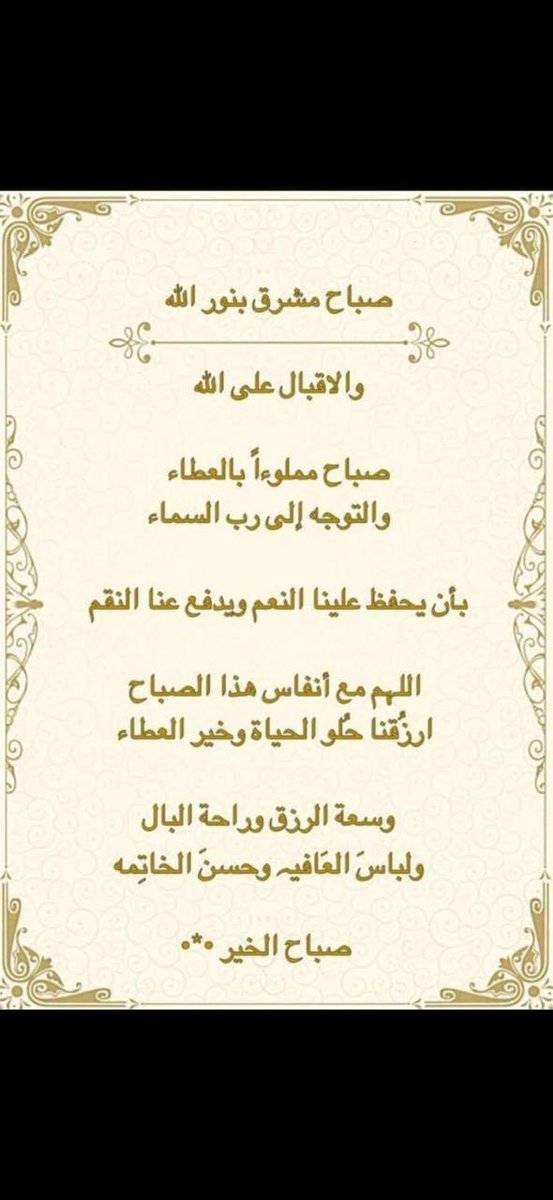 صباح مشرق بنور الله
والاقبال على الله
صباح مملوءاً بالعطاء
والتوجه إلى رب السماء
بأن يحفظ علينا النعم ويدفع عنا النقم
اللهم مع أنفاس هذا الصباح
ارزُقنا حُلو الحياة وخير العطاء
وسعة الرزق وراحة البال
ولباسَ العَافيہ وحسنَ الخاتِمه
صباح الخير •*•